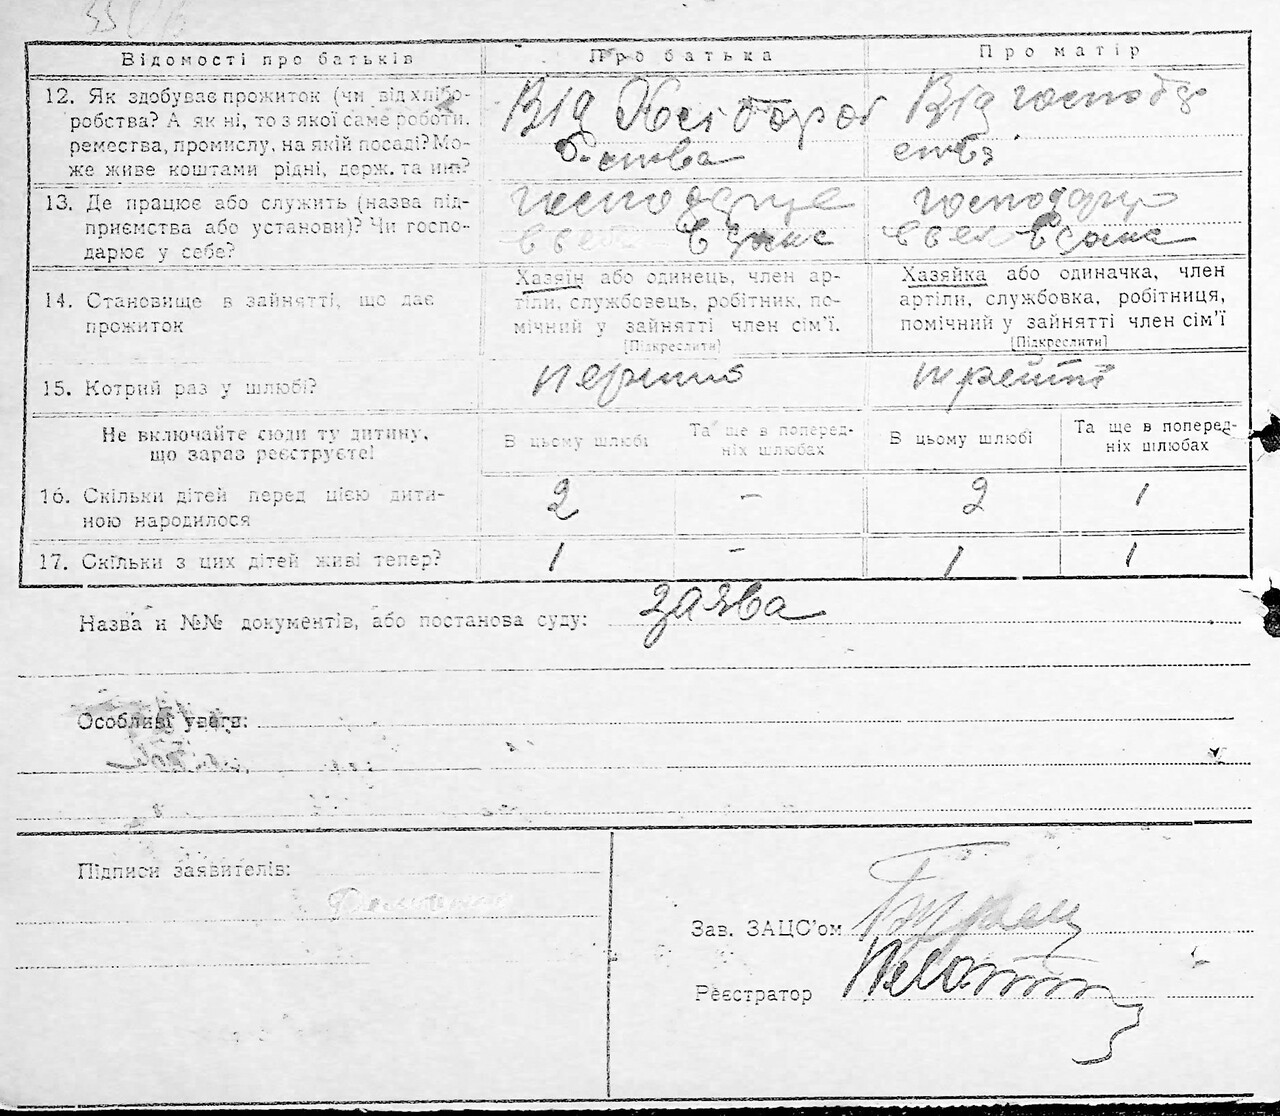 Відомості про батьків Про батька Про матір
12. Як здобуває прожиток (чи від хлібо- Від Хлібороб Від господар
робства? А як ні, то з якої саме роботи,
ремества, промислу, на якій посаді? Мо- ства ства
же живе коштами рідні, держ. та ин?
13. Де працює або служить (назва під- господарює господарює
приємства або установи)? Чи госпо- в себе
дарює у себе?
14. Становище в зайнятті, що дає
прожиток
Хазяїн або одинець, член ар-
тіли, службовець, робітник, по-
мічний у зайнятті член сім'ї.
[Підкреслити]
Хазяйка або одиначка, член
артіли, службовка, робітниця,
помічний у зайнятті член сім'ї
[Підкреслити]
15. Котрий раз у шлюбі?
Не включайте сюди ту дитину,
що зараз реєструєте!
В цьому шлюбі
Та ще в поперед-
ніх шлюбах
В цьому шлюбі
Та ще в поперед-
ніх шлюбах
16. Скільки дітей перед цією дити- 2 - 2 1
ною народилося
17. Скільки з цих дітей живі тепер? 1 - 1 1
Назва и №№ документів, або постанова суду: заява
Особливі уваги:
Підписи заявителів:
Зав. ЗАЦС'ом
Реєстратор